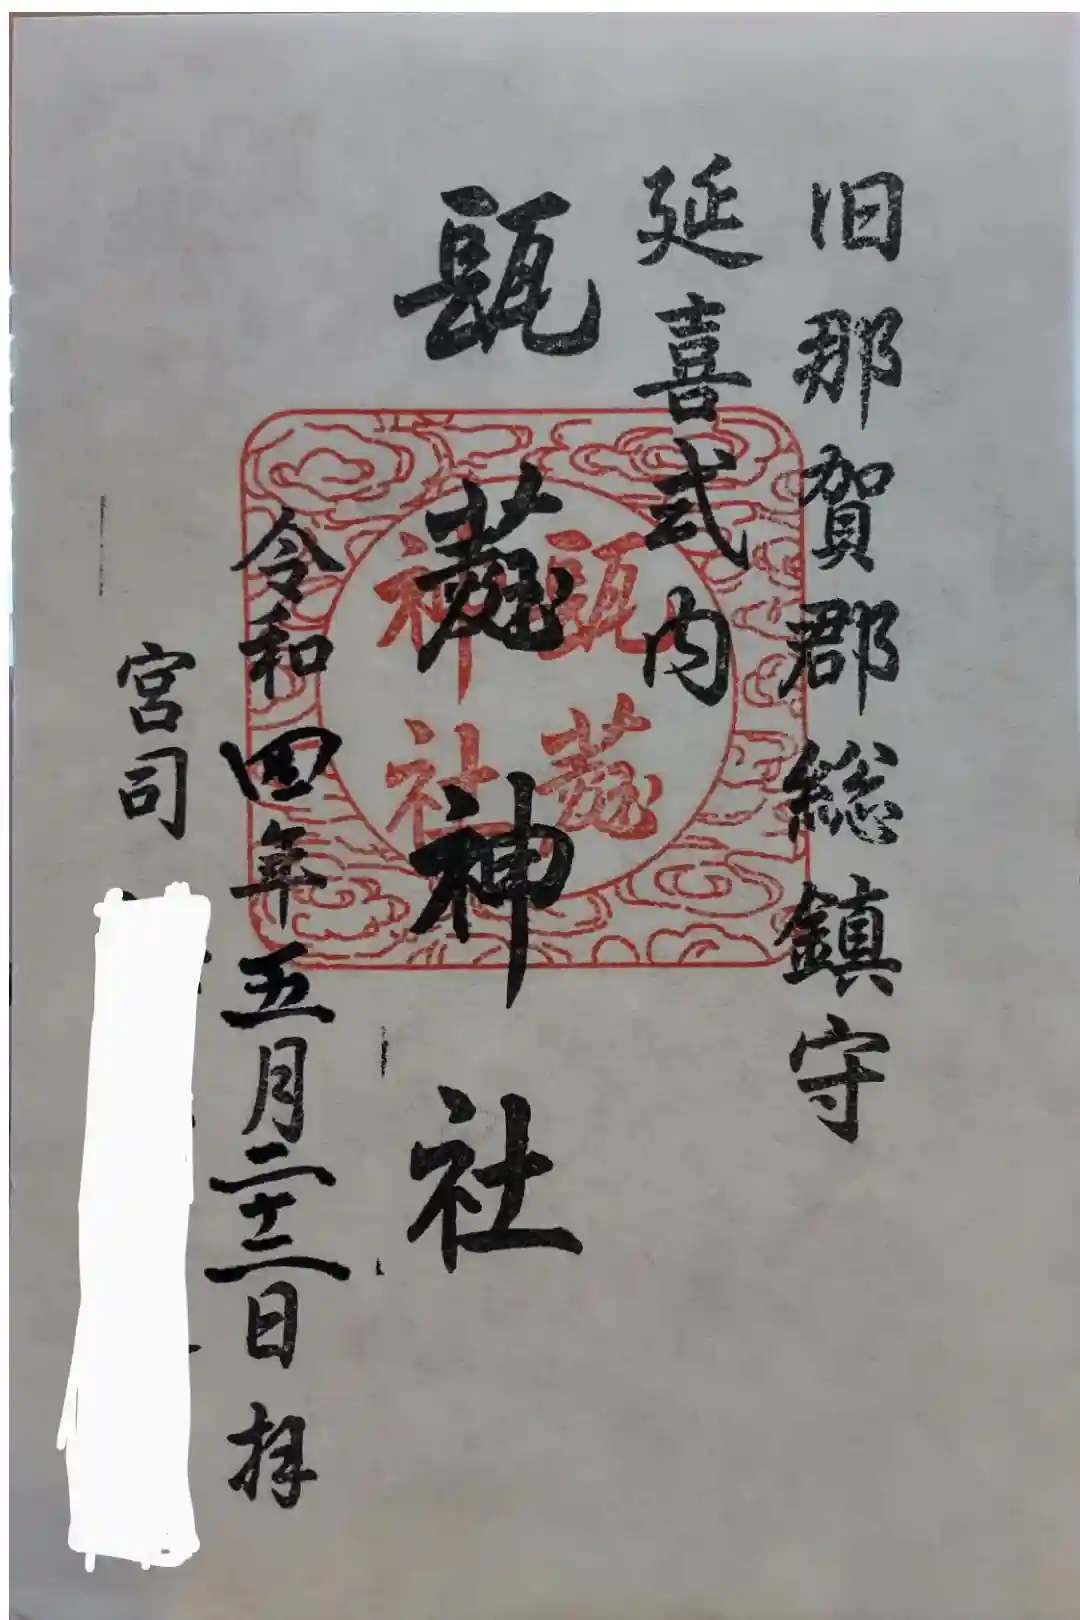 旧那賀郡総鎮守
延喜式内
瓺 神社
令和四年五月二十三日 拝
宮司
瓺
神社